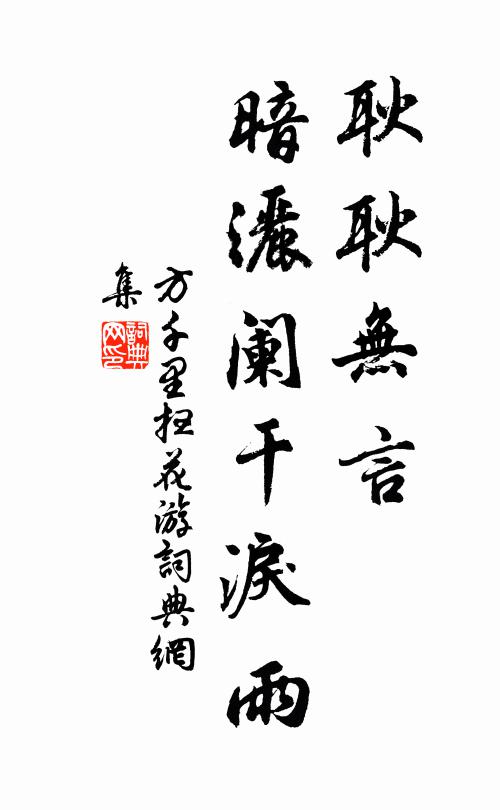 耿耿無言
暗灑阑干淚雨
方千里扫花游詞典網
集
詞典
网印